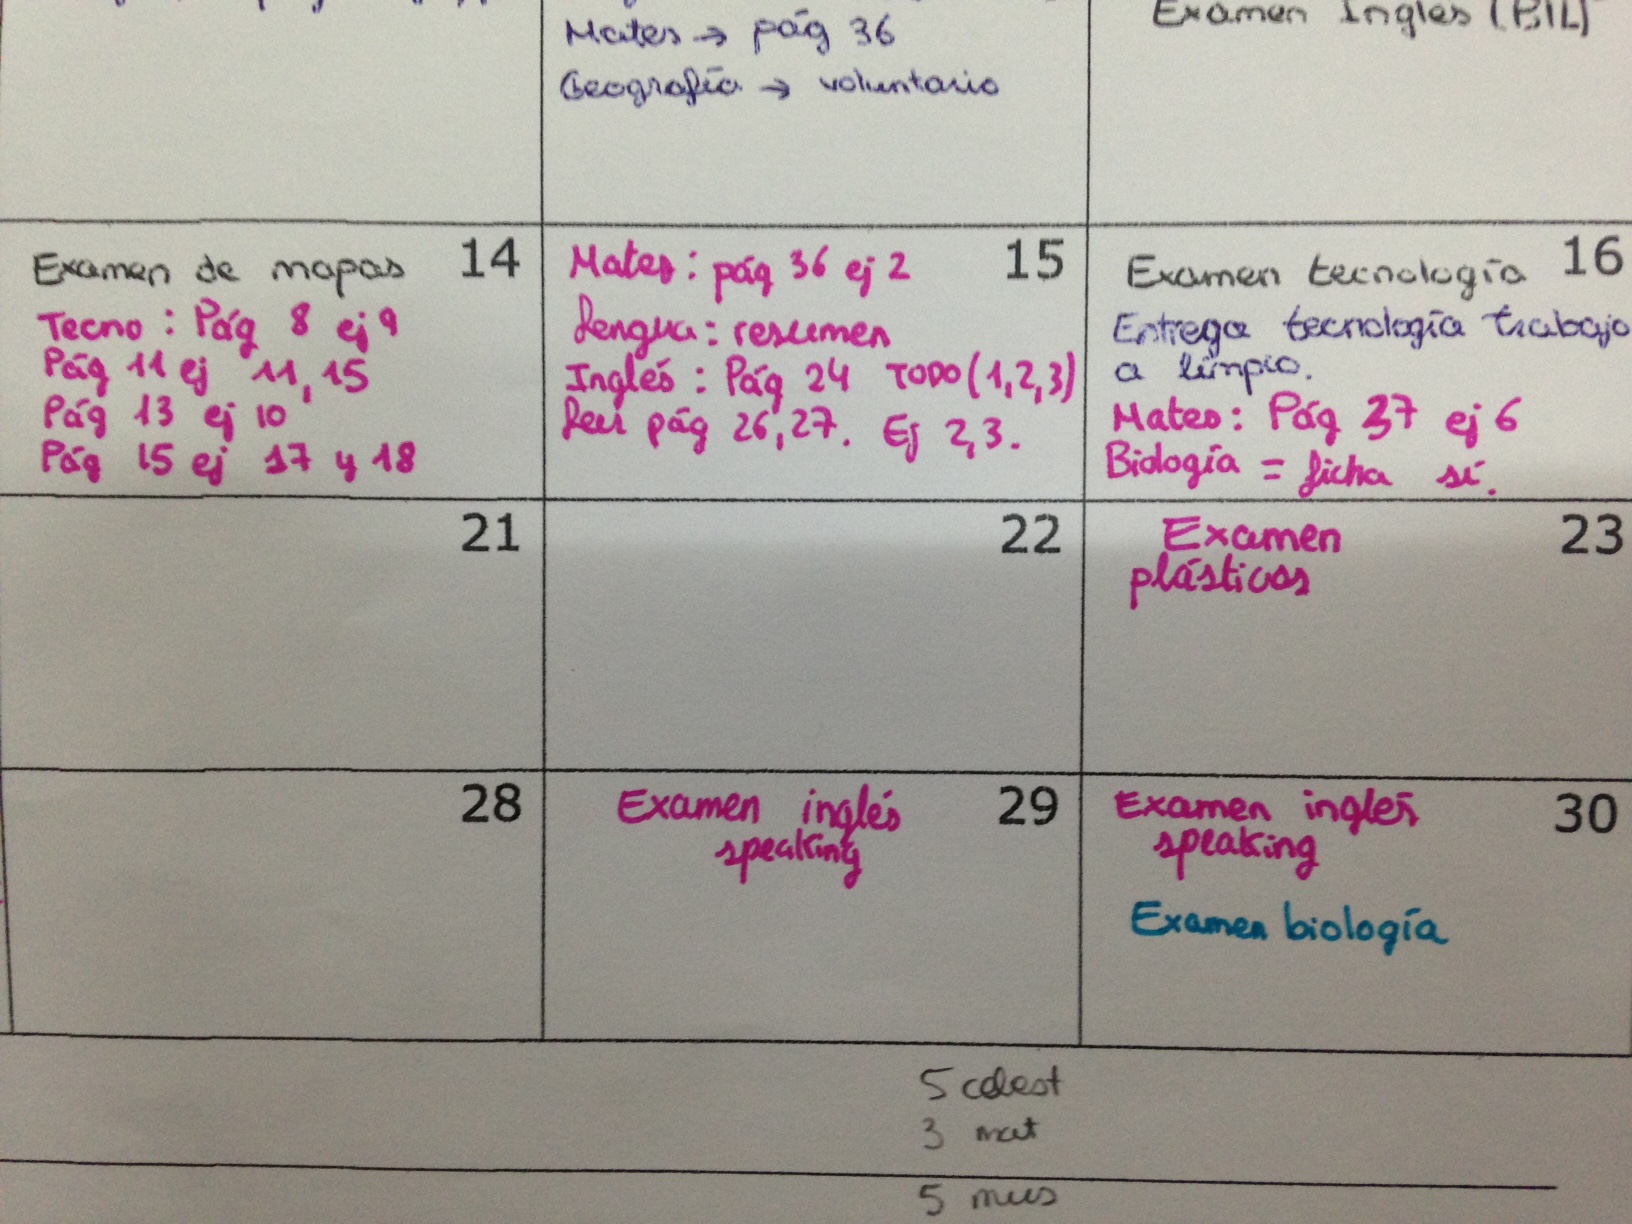 Mates → pág 36
Geografía → voluntario
Examen Inglés (BIL)
14
Examen de mapas
Tecno : Pág 8 ej 9
Pág 11 ej 11, 15
Pág 13 ej 10
Pág 15 ej 17 y 18
15
Mates: pág 36 ej 2
Lengua: resumen
Inglés : Pág 24 TODO (1,2,3)
Leer pág 26, 27. Ej 2,3.
16
Examen tecnología
Entrega tecnología trabajo
a limpio.
Mates: Pág 37 ej 6
Biología = ficha sí.
21
22
23
Examen
plásticos
28
29
Examen inglés
speaking
30
Examen inglés
speaking
Examen biología
5
3 mat
5 mus